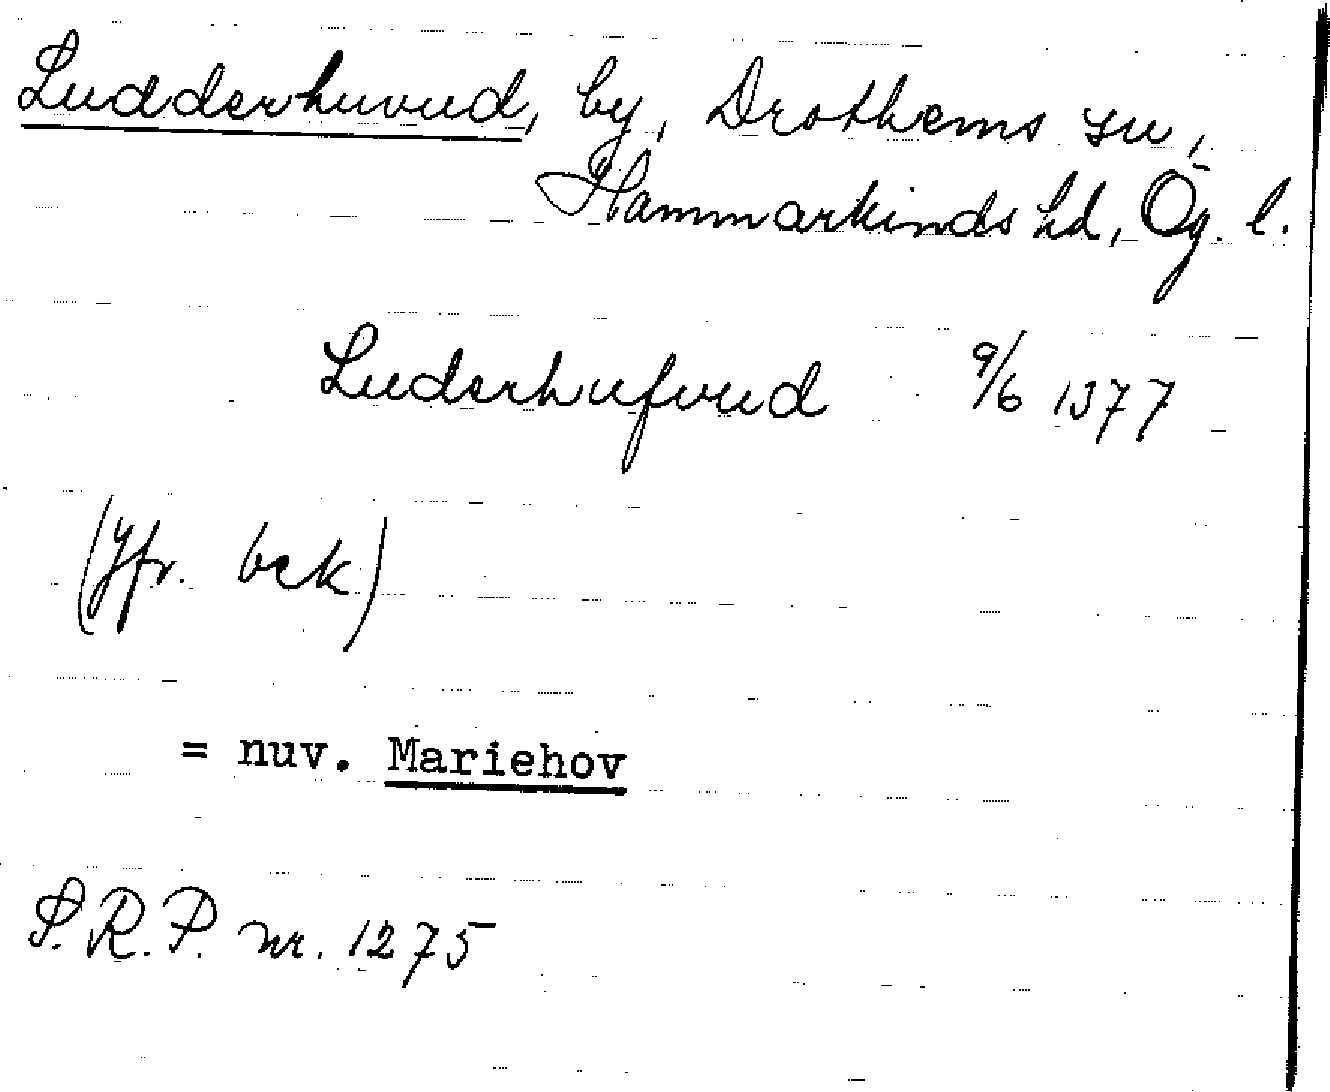 Ludderhuvud, by, Drothems sn,
Hammarkinds hd, Ög. l.
Luderhufvud 9/6 1377
(Jfr. bck)
= nuv. Mariehov
S.R.P. nr. 1275